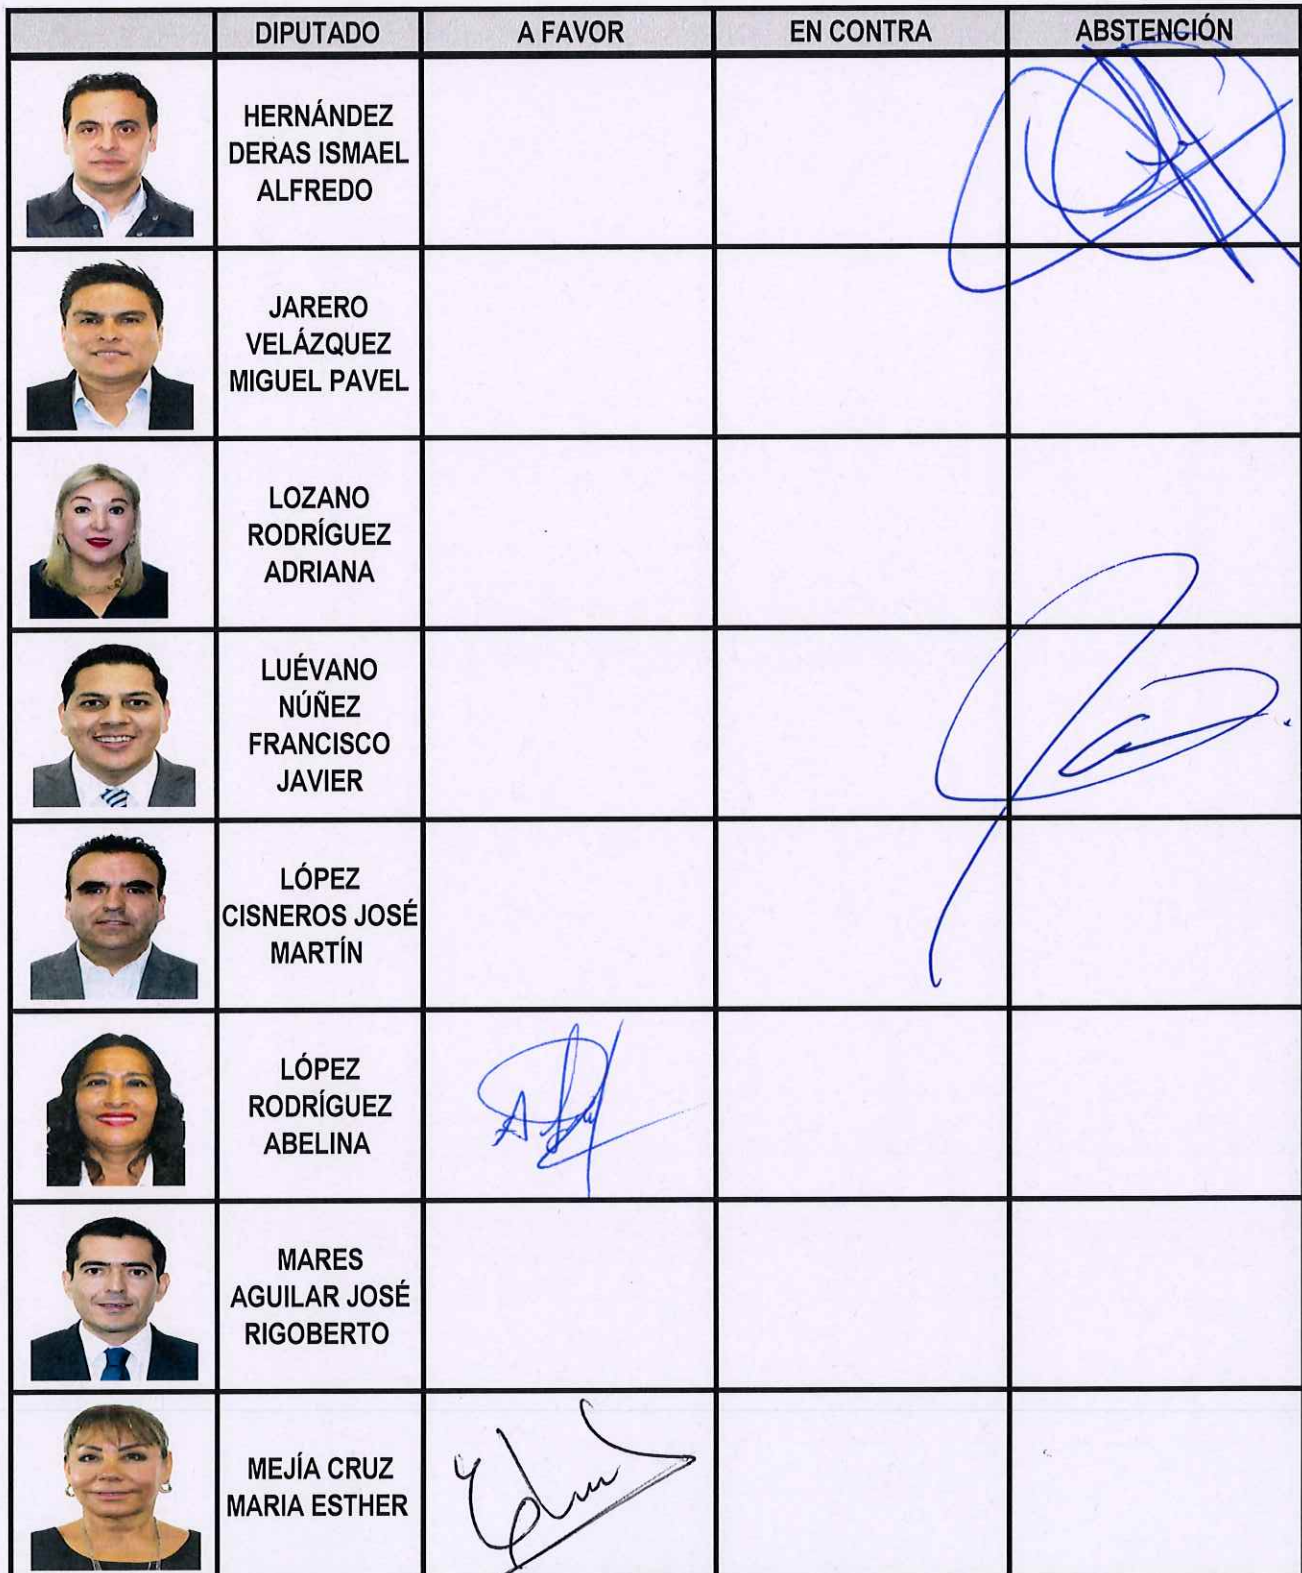 DIPUTADO A FAVOR EN CONTRA ABSTENCIÓN
HERNÁNDEZ
DERAS ISMAEL
ALFREDO
JARERO
VELÁZQUEZ
MIGUEL PAVEL
LOZANO
RODRÍGUEZ
ADRIANA
LUÉVANO
NÚÑEZ
FRANCISCO
JAVIER
LÓPEZ
CISNEROS JOSÉ
MARTÍN
LÓPEZ
RODRÍGUEZ
ABELINA
MARES
AGUILAR JOSÉ
RIGOBERTO
MEJÍA CRUZ
MARIA ESTHER